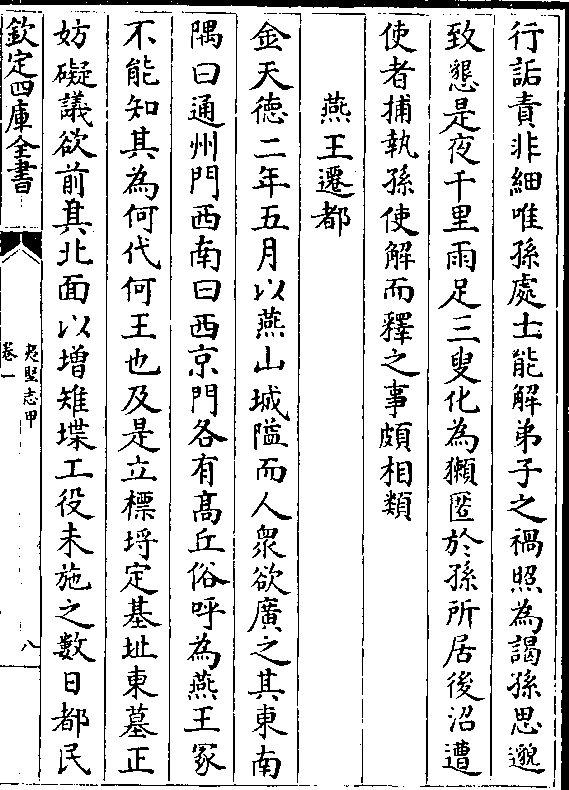 行詬責非細唯孫處士能解弟子之禍照為謁孫思邈
致懇是夜千里雨足三叟化為獺匿於孫所居後沼遭
使者捕執孫使解而釋之事頗相類
燕王遷都
金天德二年五月以燕山城隘而人衆欲廣之其東南
隅曰通州門西南曰西京門各有髙丘俗呼為燕王冢
不能知其為何代何王也及是立標埒定基址東墓正
妨礙議欲前其北面以增雉堞工役未施之數日都民
欽定四庫全書
夷堅志甲
卷一
八